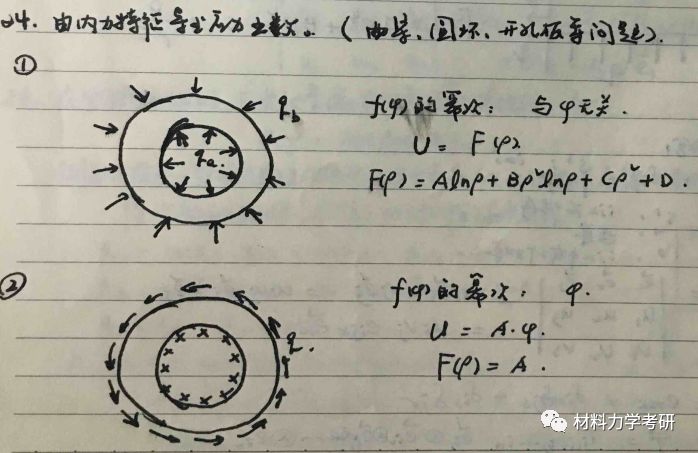 24. 由内力特征导出应力函数。(曲梁、圆环、开孔板等问题).
①
qb
qa.
f(φ)的幂次: 与φ无关.
U = F(ρ)
F(ρ) = Alnρ + Bρ²lnρ + Cρ² + D.
②
q.
f(φ)的幂次: φ.
U = A·φ.
F(ρ) = A.
材料力学考研